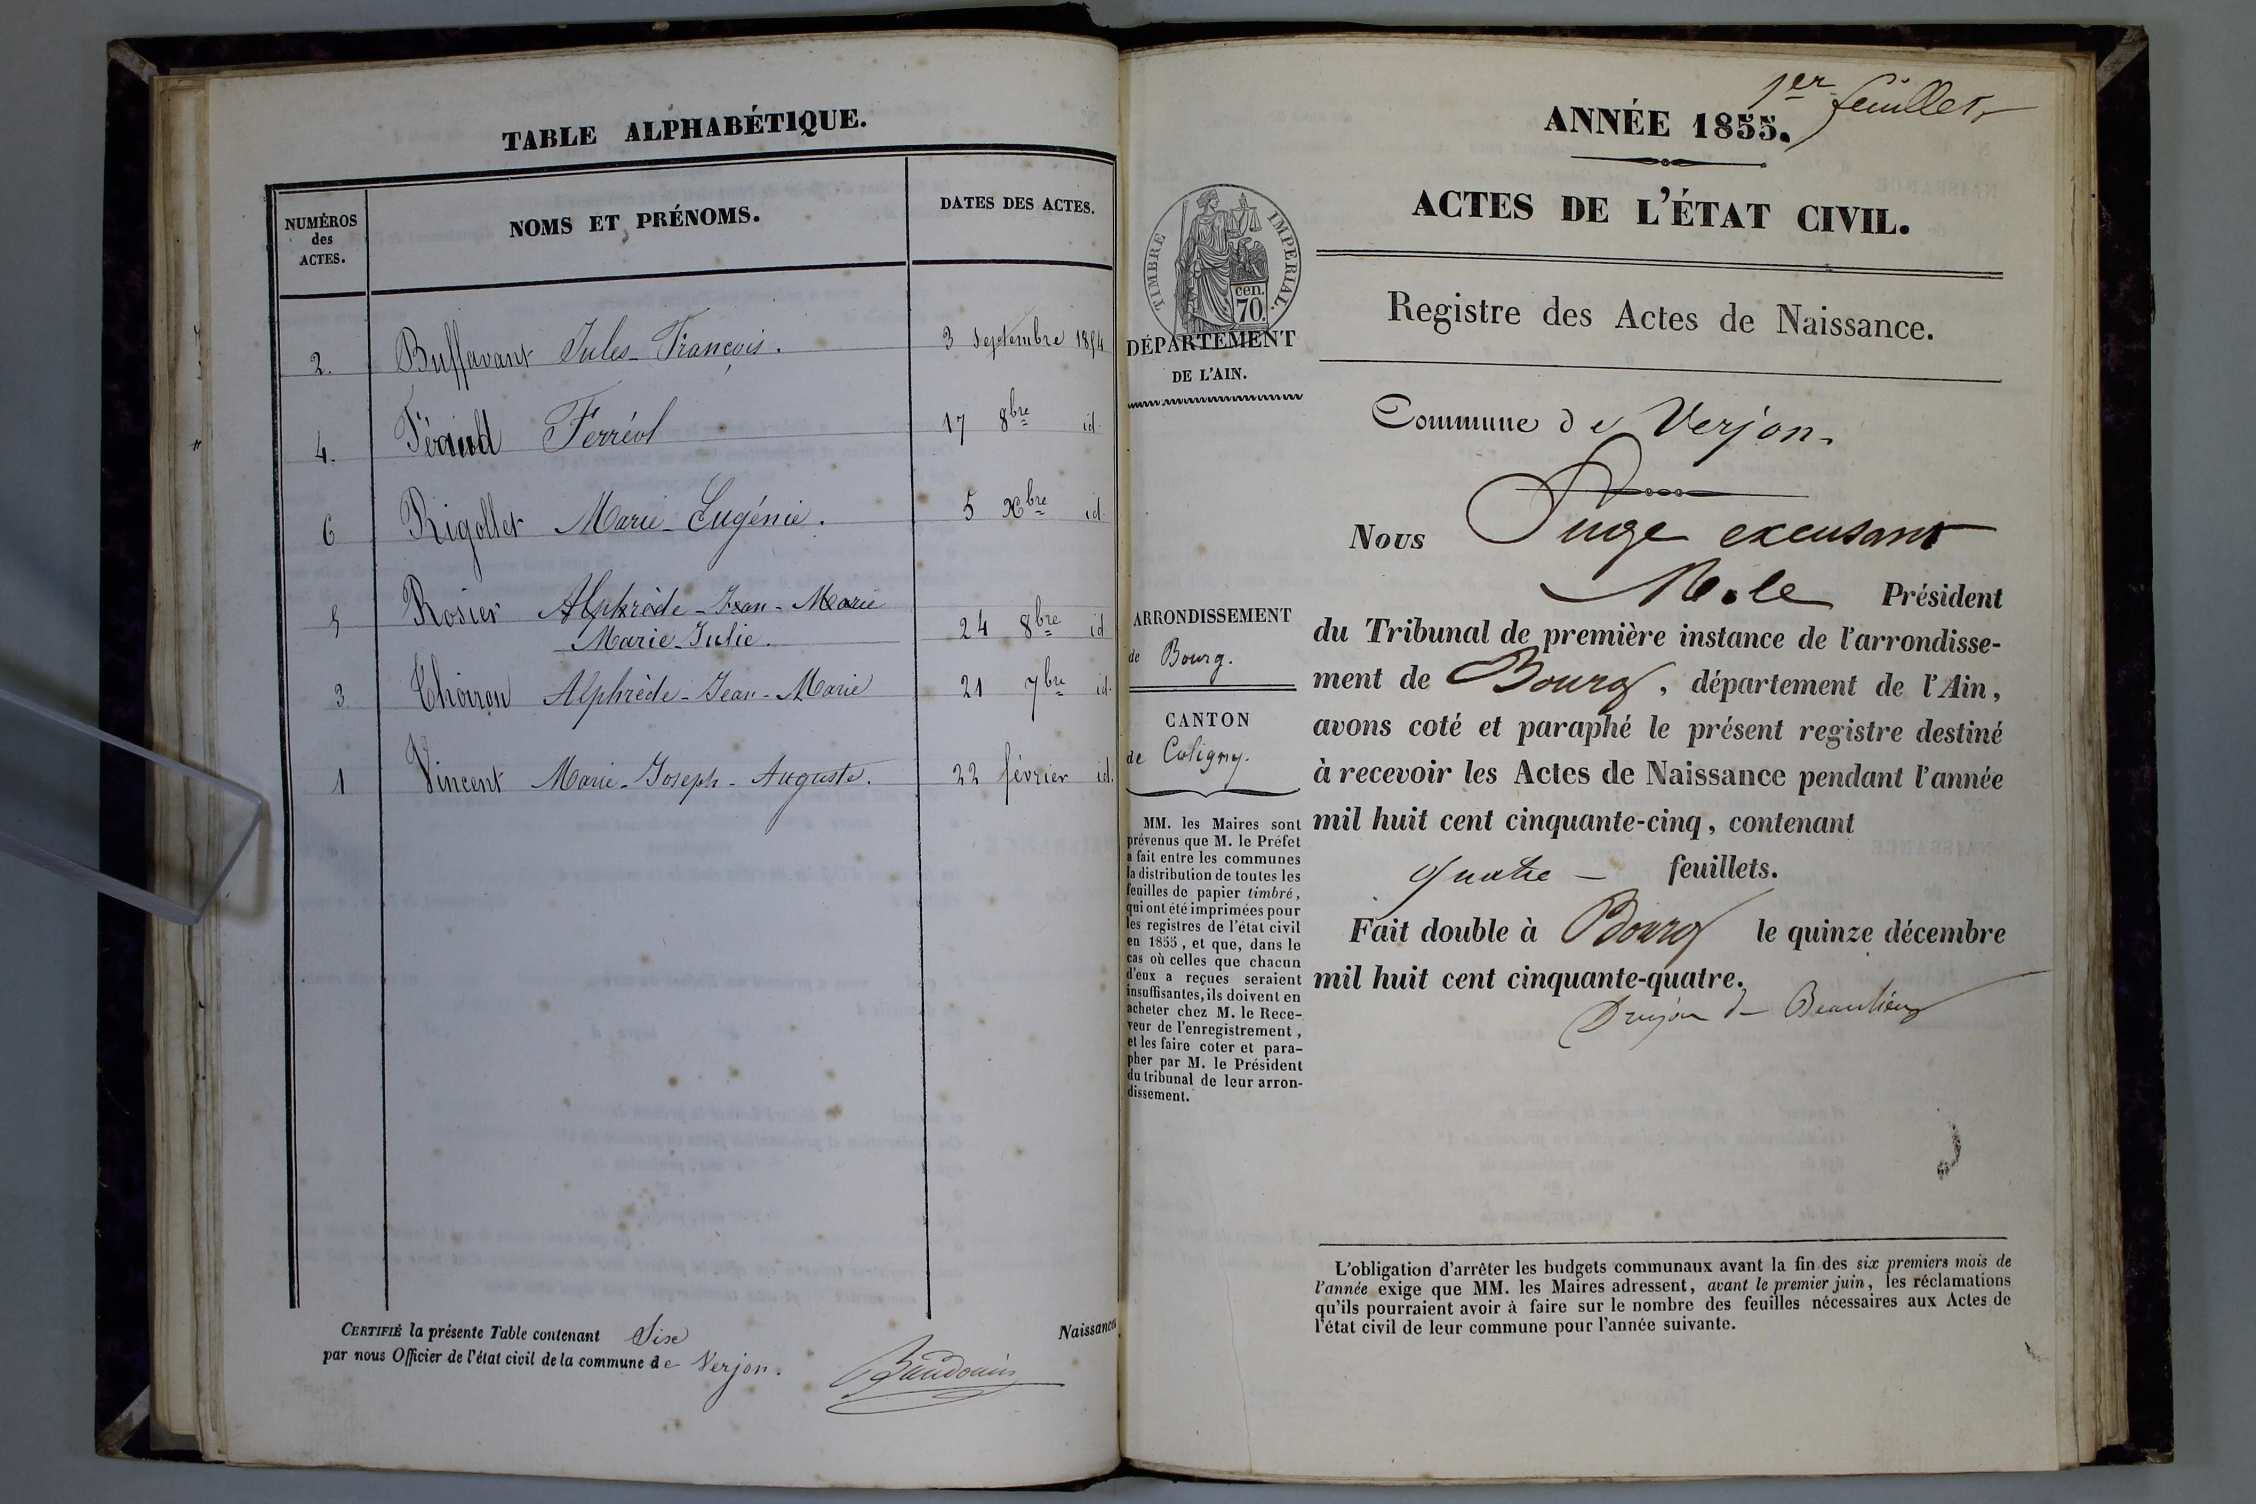 TABLE ALPHABÉTIQUE.
NUMÉROS
des
ACTES.
NOMS ET PRÉNOMS.
DATES DES ACTES.
2. Buffavant Jules-François. 3 Septembre 1854
4. Féraud Ferréol 17 8bre id.
6 Rigollet Marie-Eugénie. 5 Xbre id.
5 Rosier Alphrède-Jean-Marie
Marie-Julie. 24 8bre id
3 Thoiron Alphrède-Jean-Marie 21 7bre id.
1 Vincent Marie-Joseph-Auguste. 22 février id.
CERTIFIÉ la présente Table contenant Six Naissances
par nous Officier de l'état civil de la commune de Verjon.
Baudouin
1er feuillet
ANNÉE 1855.
ACTES DE L'ÉTAT CIVIL.
TIMBRE IMPERIAL.
cen.
70.
DÉPARTEMENT
DE L'AIN.
ARRONDISSEMENT
de Bourg.
CANTON
de Coligny.
MM. les Maires sont
prévenus que M. le Préfet
a fait entre les communes
la distribution de toutes les
feuilles de papier timbré,
qui ont été imprimées pour
les registres de l'état civil
en 1855, et que, dans le
cas où celles que chacun
d'eux a reçues seraient
insuffisantes, ils doivent en
acheter chez M. le Rece-
veur de l'enregistrement,
et les faire coter et para-
pher par M. le Président
du tribunal de leur arron-
dissement.
Registre des Actes de Naissance.
Commune de Verjon.
Nous Juge excusant
M. le Président
du Tribunal de première instance de l'arrondisse-
ment de Bourg, département de l'Ain,
avons coté et paraphé le présent registre destiné
à recevoir les Actes de Naissance pendant l'année
mil huit cent cinquante-cinq, contenant
quatre feuillets.
Fait double à Bourg le quinze décembre
mil huit cent cinquante-quatre.
Drujon de Beaulieu
L'obligation d'arrêter les budgets communaux avant la fin des six premiers mois de
l'année exige que MM. les Maires adressent, avant le premier juin, les réclamations
qu'ils pourraient avoir à faire sur le nombre des feuilles nécessaires aux Actes de
l'état civil de leur commune pour l'année suivante.